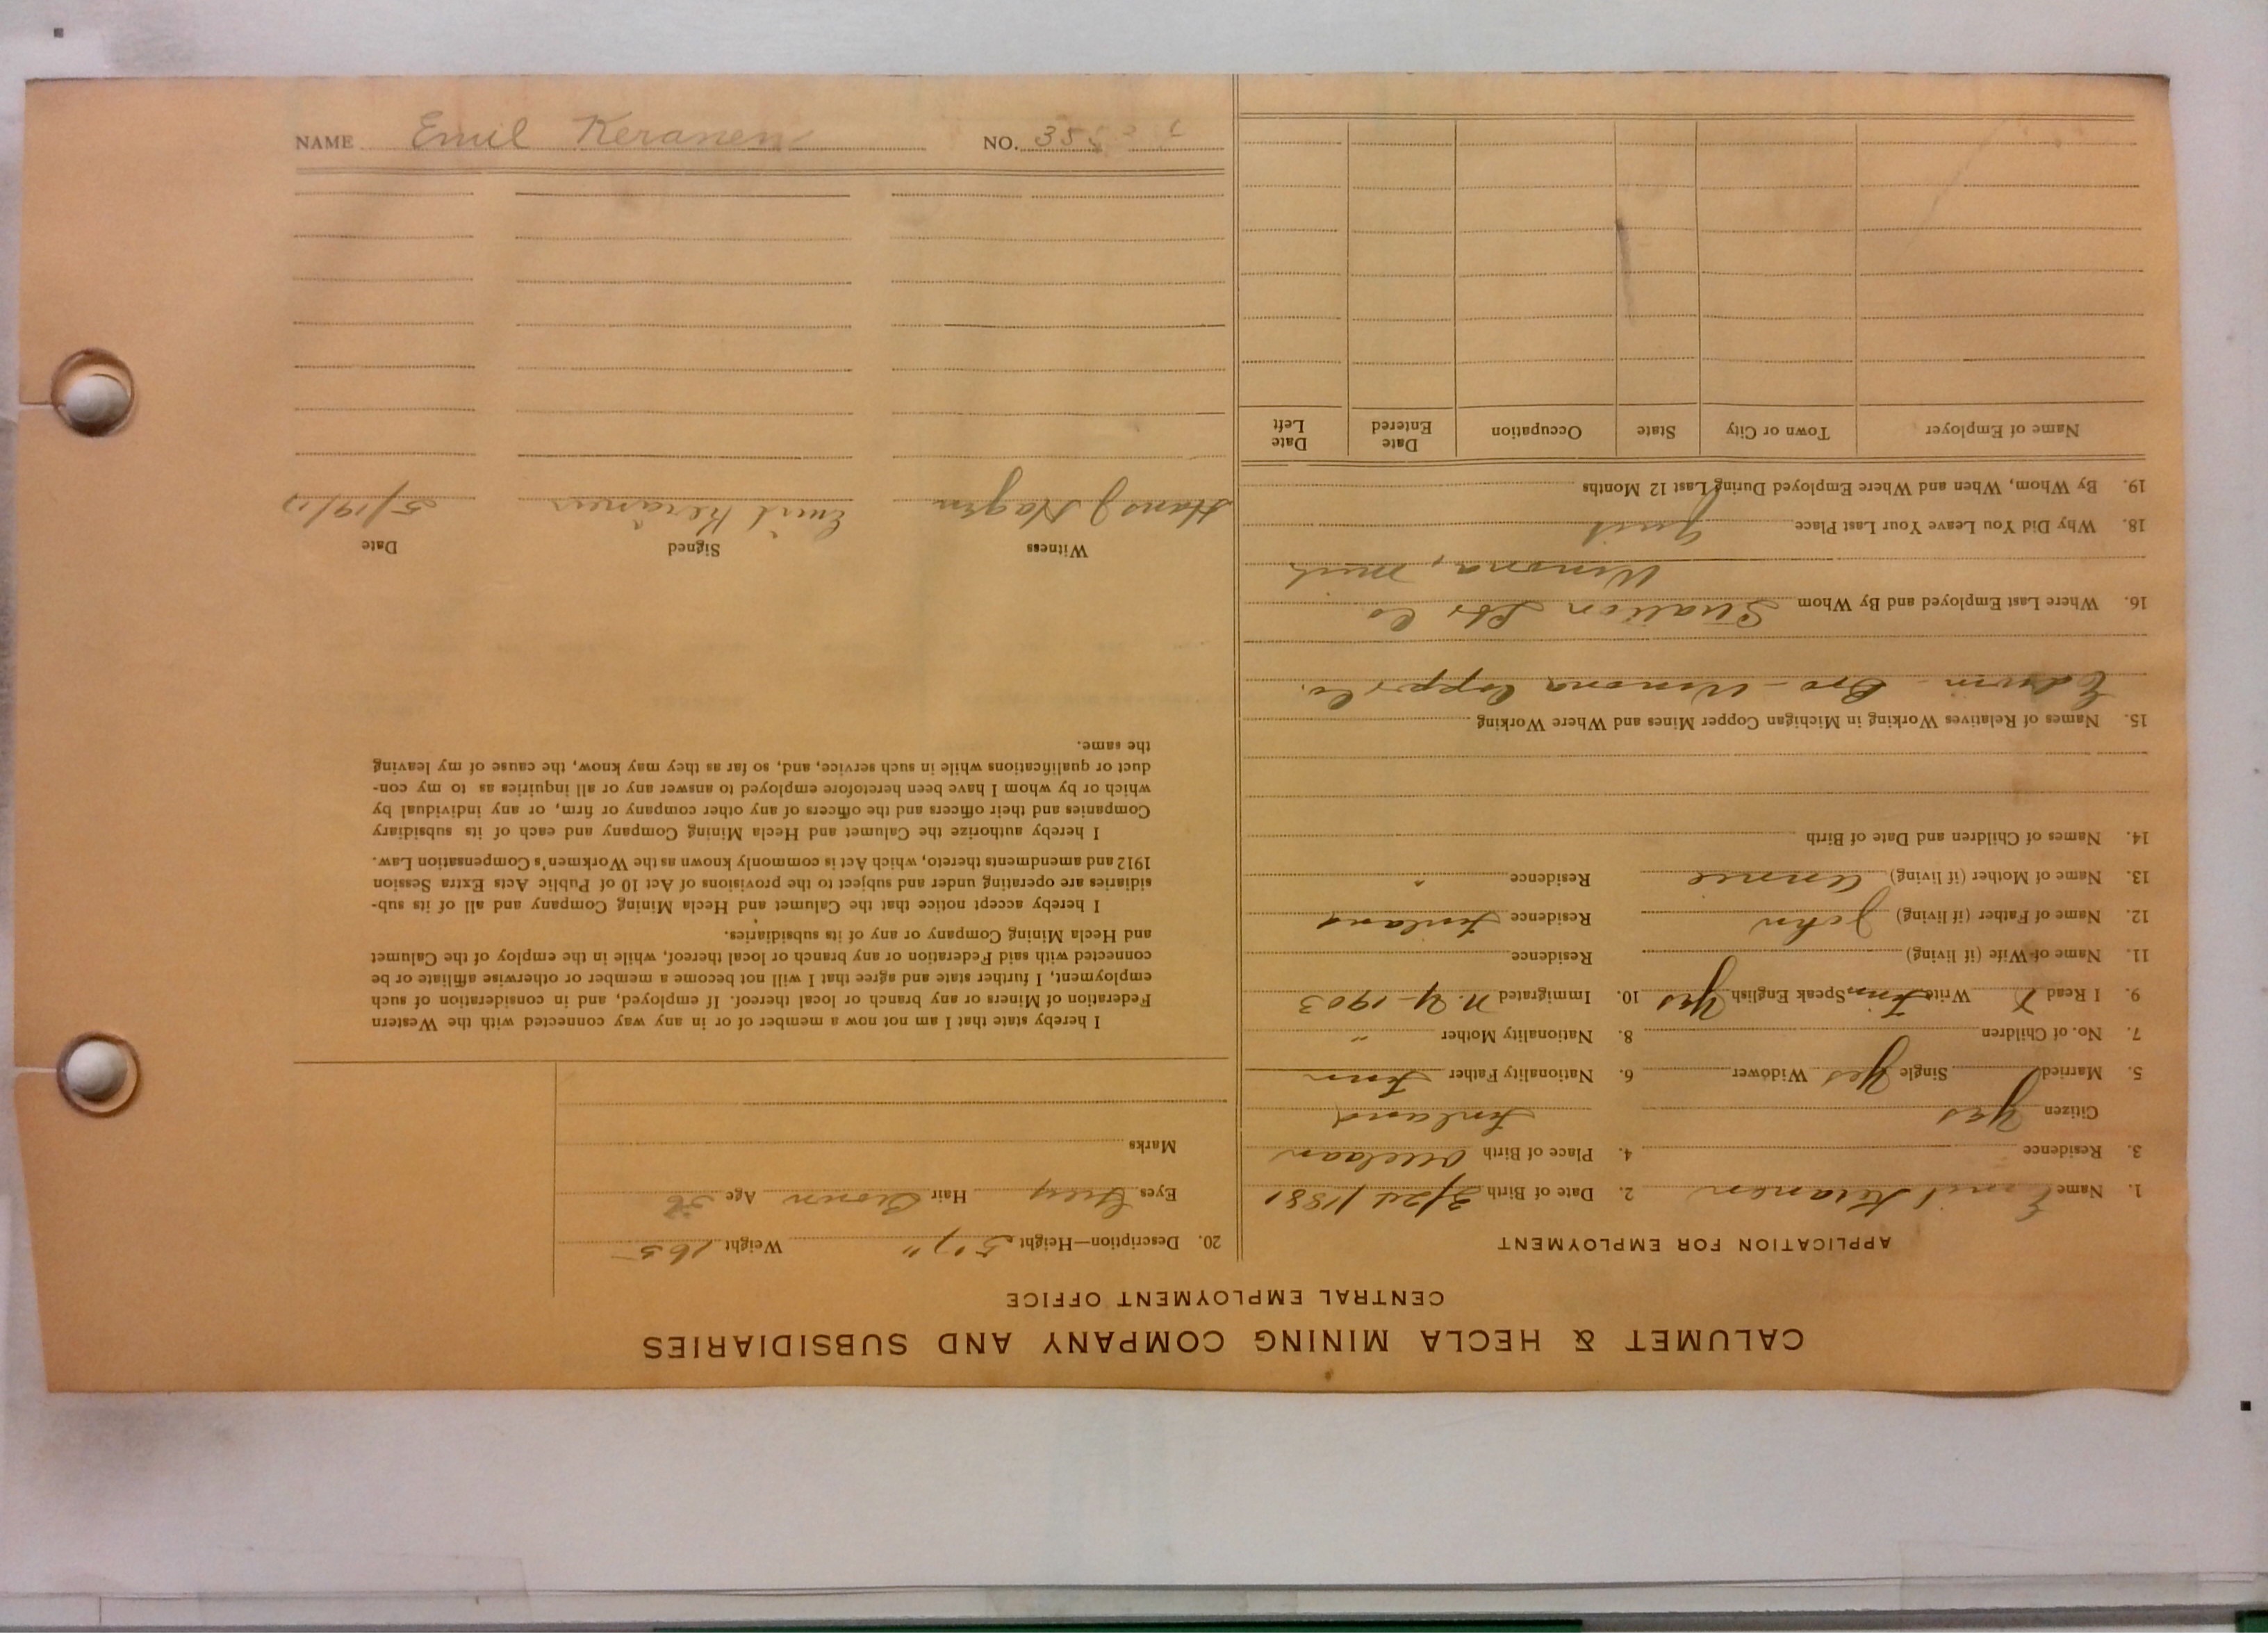 CALUMET & HECLA MINING COMPANY AND SUBSIDIARIES
CENTRAL EMPLOYMENT OFFICE
APPLICATION FOR EMPLOYMENT
1. Name Emil Keranen 2. Date of Birth 3/24/1881
3. Residence 4. Place of Birth
Citizen Yes Finland
5. Married Single Yes Widower 6. Nationality Father Finn
7. No. of Children 8. Nationality Mother "
9. I Read Write Finn Speak English Yes 10. Immigrated N.Y. 1903
11. Name of Wife (if living) Residence
12. Name of Father (if living) John Residence Finland
13. Name of Mother (if living) Annie Residence "
14. Names of Children and Date of Birth
15. Names of Relatives Working in Michigan Copper Mines and Where Working
Edwin - Bro - Winona Copper Co.
16. Where Last Employed and By Whom Co
Winona, Mich
18. Why Did You Leave Your Last Place Quit
19. By Whom, When and Where Employed During Last 12 Months
Name of Employer Town or City State Occupation Date Entered Date Left
20. Description—Height 5'7" Weight 165
Eyes Grey Hair Brown Age 36
Marks
I hereby state that I am not now a member of or in any way connected with the Western
Federation of Miners or any branch or local thereof. If employed, and in consideration of such
employment, I further state and agree that I will not become a member or otherwise affiliate or be
connected with said Federation or any branch or local thereof, while in the employ of the Calumet
and Hecla Mining Company or any of its subsidiaries.
I hereby accept notice that the Calumet and Hecla Mining Company and all of its sub-
sidiaries are operating under and subject to the provisions of Act 10 of Public Acts Extra Session
1912 and amendments thereto, which Act is commonly known as the Workmen's Compensation Law.
I hereby authorize the Calumet and Hecla Mining Company and each of its subsidiary
Companies and their officers and the officers of any other company or firm, or any individual by
which or by whom I have been heretofore employed to answer any or all inquiries as to my con-
duct or qualifications while in such service, and, so far as they may know, the cause of my leaving
the same.
Witness Signed Date
Hans J Hagen Emil Keranen 5/19/17
NAME Emil Keranen NO.